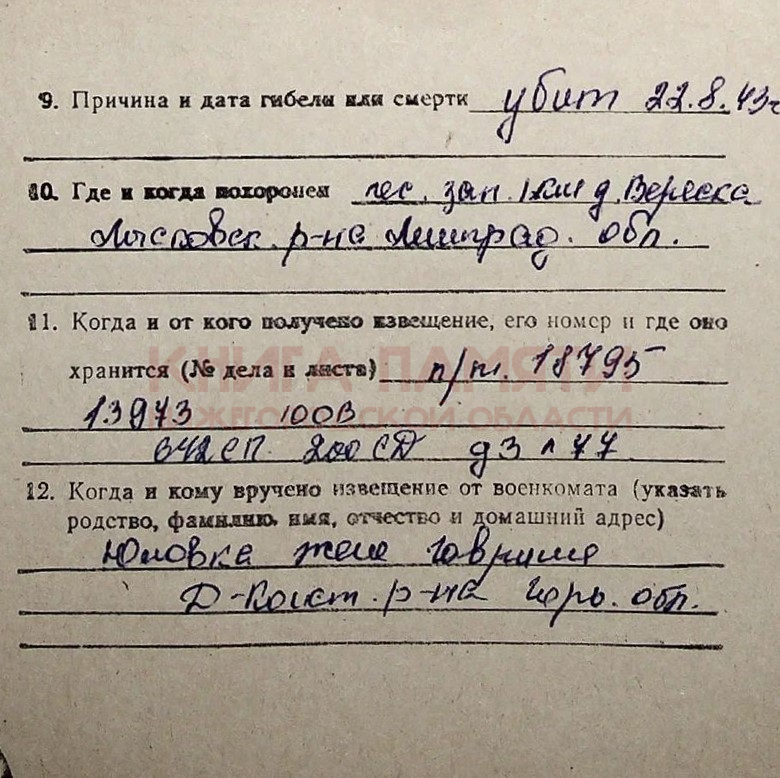 9. Причина и дата гибели или смерти убит 22.8.43г
10. Где и когда похоронен лес. зап. 1км д. Веряска
Лычковск. р-на Ленинград. обл.
11. Когда и от кого получено извещение, его номер и где оно
хранится (№ дела и листа) п/п. 18795
КНИГА ПАМЯТИ
НИЖЕГОРОДСКОЙ ОБЛАСТИ
13973 100В
642СП 200СД д3 л 77
12. Когда и кому вручено извещение от военкомата (указать
родство, фамилию, имя, отчество и домашний адрес)
Юловка жене
Д-Конст. р-на Горьк. обл.